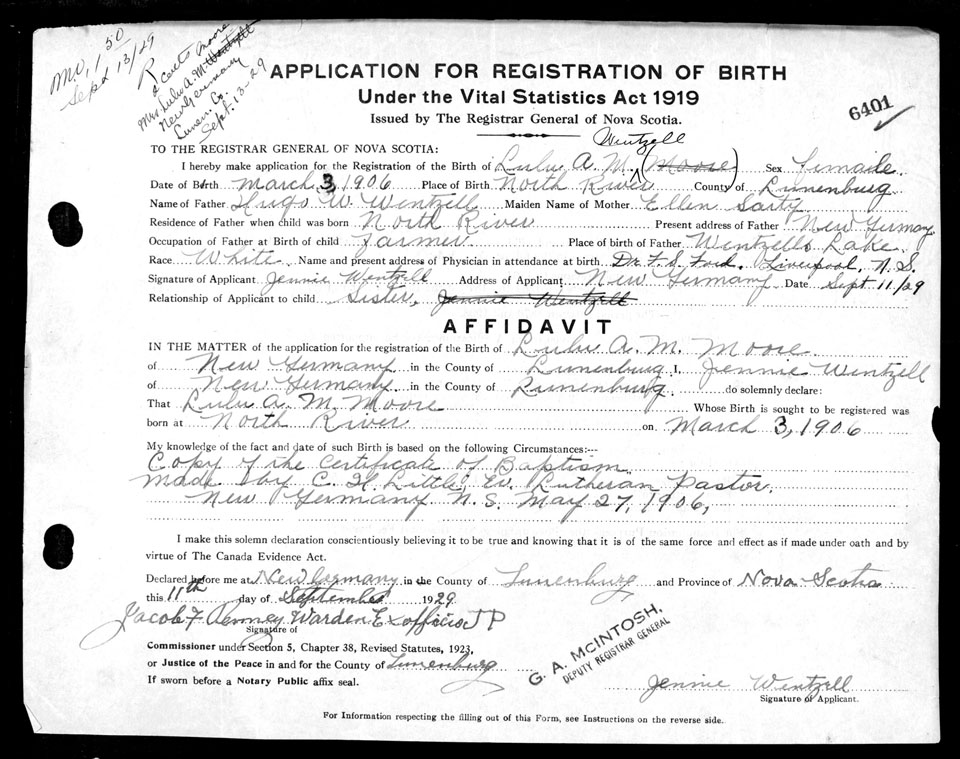 MO, 1 50
Sept 13/29
R 2 certs Moore
Mrs. Lulu A. M. Wentzell
New Germany
Lunen. Co.
Sept. 13-29
APPLICATION FOR REGISTRATION OF BIRTH
Under the Vital Statistics Act 1919
Issued by The Registrar General of Nova Scotia.
6401
TO THE REGISTRAR GENERAL OF NOVA SCOTIA:
Wentzell
I hereby make application for the Registration of the Birth of Lulu A. M. (Moore) Sex Female
Date of Birth March 3, 1906 Place of Birth North River County of Lunenburg
Name of Father Hugo W. Wentzell Maiden Name of Mother Ellen Sarty
Residence of Father when child was born North River Present address of Father New Germany
Occupation of Father at Birth of child Farmer Place of birth of Father Wentzells Lake
Race White Name and present address of Physician in attendance at birth Dr. F. S. Ford. Liverpool, N. S.
Signature of Applicant Jennie Wentzell Address of Applicant New Germany Date Sept 11/29
Relationship of Applicant to child Sister, Jennie Wentzell
AFFIDAVIT
IN THE MATTER of the application for the registration of the Birth of Lulu A. M. Moore
of New Germany in the County of Lunenburg I, Jennie Wentzell
of New Germany in the County of Lunenburg do solemnly declare:
That Lulu A. M. Moore Whose Birth is sought to be registered was
born at North River on March 3, 1906
My knowledge of the fact and date of such Birth is based on the following Circumstances:—
Copy of the Certificate of Baptism
made by C. H. Little, Ev. Lutheran Pastor,
New Germany N. S. May 27, 1906,
I make this solemn declaration conscientiously believing it to be true and knowing that it is of the same force and effect as if made under oath and by
virtue of The Canada Evidence Act.
Declared before me at New Germany in the County of Lunenburg and Province of Nova Scotia
this 11th day of September 1929
Jacob F. Venney Warden Exofficio J P
Signature of
Commissioner under Section 5, Chapter 38, Revised Statutes, 1923,
or Justice of the Peace in and for the County of Lunenburg
If sworn before a Notary Public affix seal.
G. A. McINTOSH,
DEPUTY REGISTRAR GENERAL
Jennie Wentzell
Signature of Applicant.
For Information respecting the filling out of this Form, see Instructions on the reverse side.